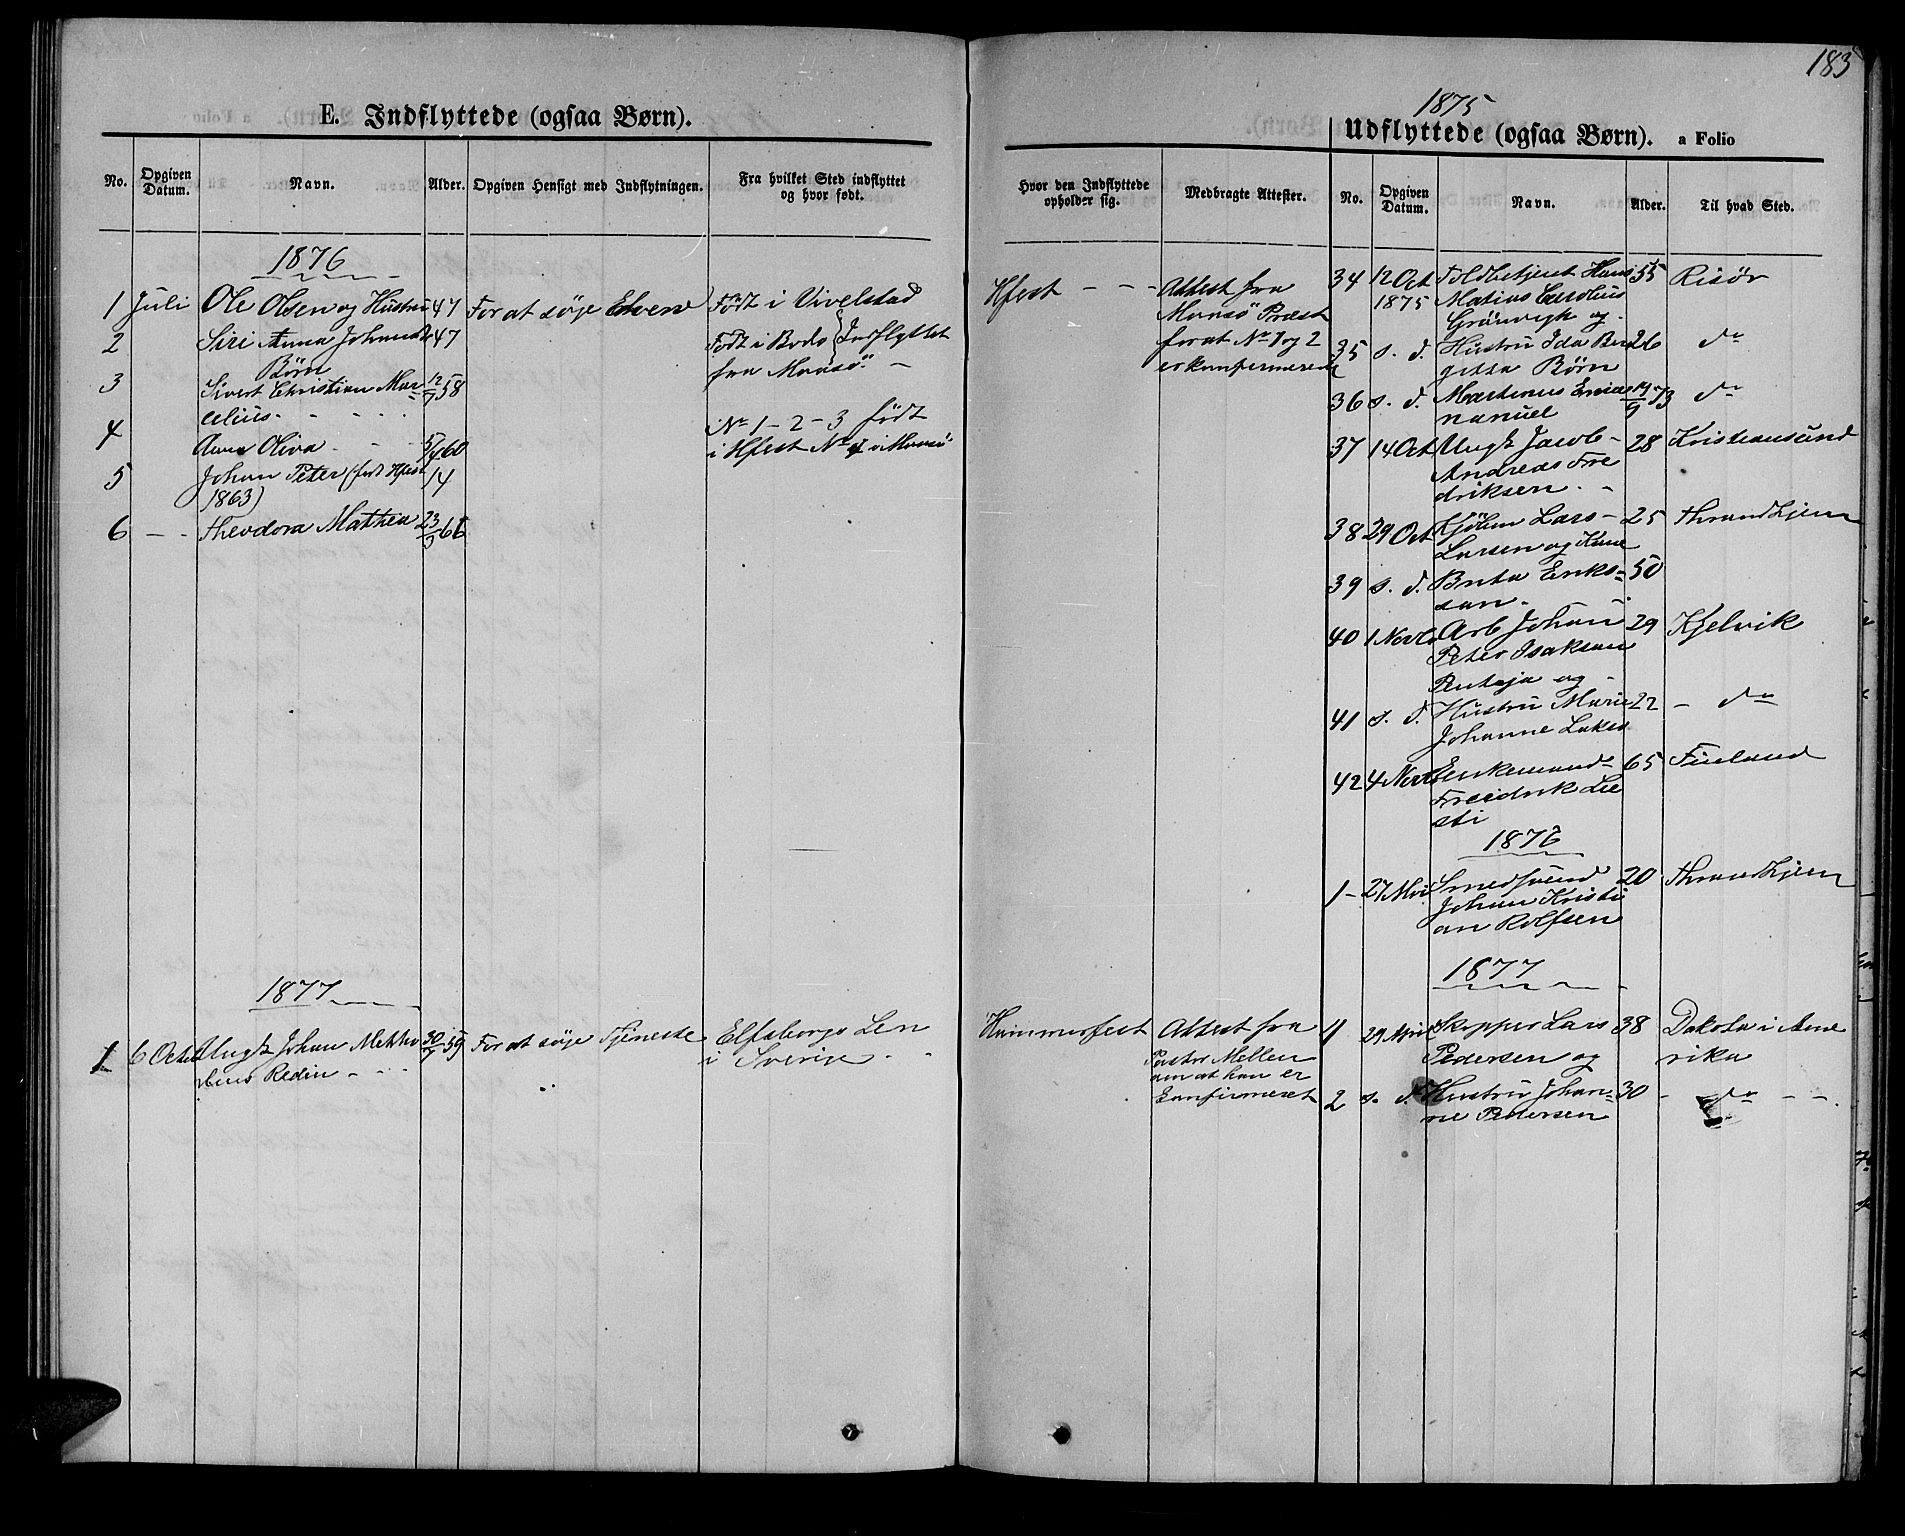 183
E. Indflyttede (ogsaa Børn).
No.
Opgiven Datum.
Navn.
Alder.
Opgiven Hensigt med Indflytningen.
Fra hvilket Sted indflyttet
og hvor født.
1876
1 Juli Ole Olsen og Hustru 47 For at søge Erhverv Født i
2 Siri Anna 47 Født i Bodø Indflyttet
Børn fra Maasø. –
3 Sivert Christian Mar 12/7 58
celius
No 1 – 2 – 3 født
4 Anna Oliva 60 i Hfest No 4 i Maasø
5 Johan Peter (født Hfest 14
1863)
6 – – Theodora Mathea 23
1877
1 6 Octo Ungk Johan 30/7 59 For at søge Tjeneste Elfsborgs Len
Redin – i Sverige
1875
Udflyttede (ogsaa Børn). a Folio
Hvor den Indflyttede
opholder sig.
Medbragte Attester.
No.
Opgiven
Datum.
Navn.
Alder.
Til hvad Sted.
Hfest – – – Attest fra
Maasø Præst
for at No 1 og 2
er konfirmerede
34 12 Oct Toldbetjent Hans 55 Risør
1875 Matias Carolius
Grönvigk og
35 s. d. Hustru Ida Ber 26 do
gitta Børn
36 s. d. Martinus Em 73 do
nanuel
37 14 Oct Ungk Jacob – 28 Kristiansund
Andreas Fre
driksen
38 29 Oct Lars – 25 Throndhjem
Larsen og Kone
39 s. d. Brita Eriks- 50
san –
40 1 Novb Arb Johan 29 Kjelvik
Peter Isaksen
og –
41 s. d. Hustru Marie 22 – do
Johanne
42 4 Novb Enkemand 65 Finland
Freidrik
1876
1 – 27 Smedsvend 20 Throndhjem
Johan Kristi
an Rolfsen
1877
Hammerfest Attest fra
Pastor Mellen
om at han er
konfirmeret
1 29 April Skipper Lars 38 Dakota i Ame
Pedersen og rika
2 s. d. Hustru Johan- 30 – do – –
ne Pedersen